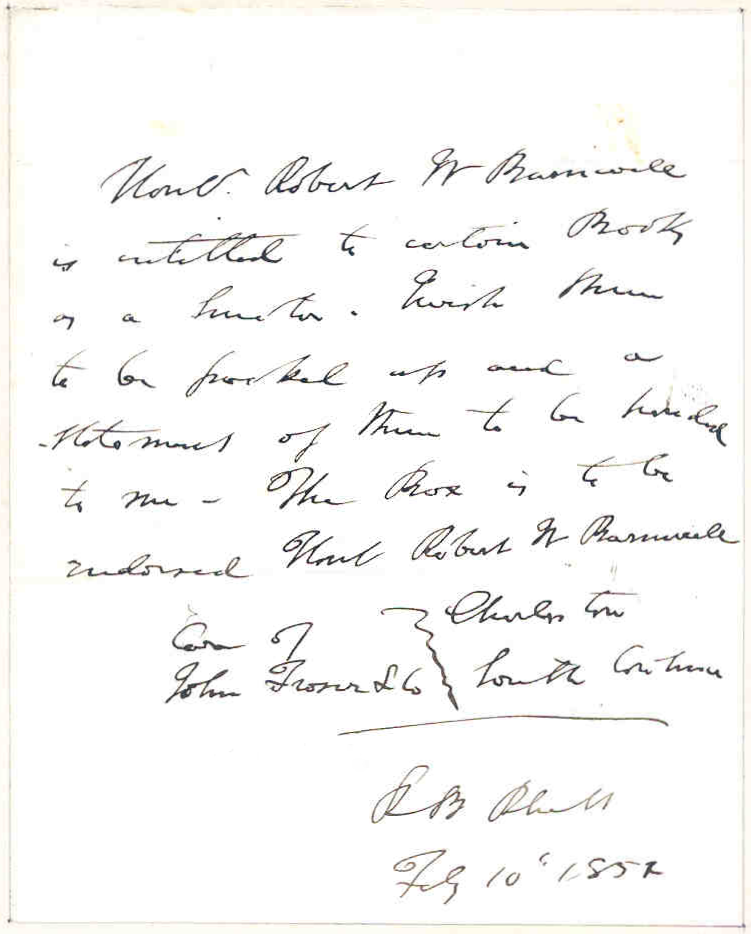 Honl. Robert W Barnwell
is entitled to certain Books
as a Senator. I wish them
to be packed up and a
statement of them to be handed
to me – The Box is to be
endorsed Honl Robert W Barnwell
Care of } Charleston
John Fraser & Co } South Carolina
R B Rhett
Feby 10th 1852